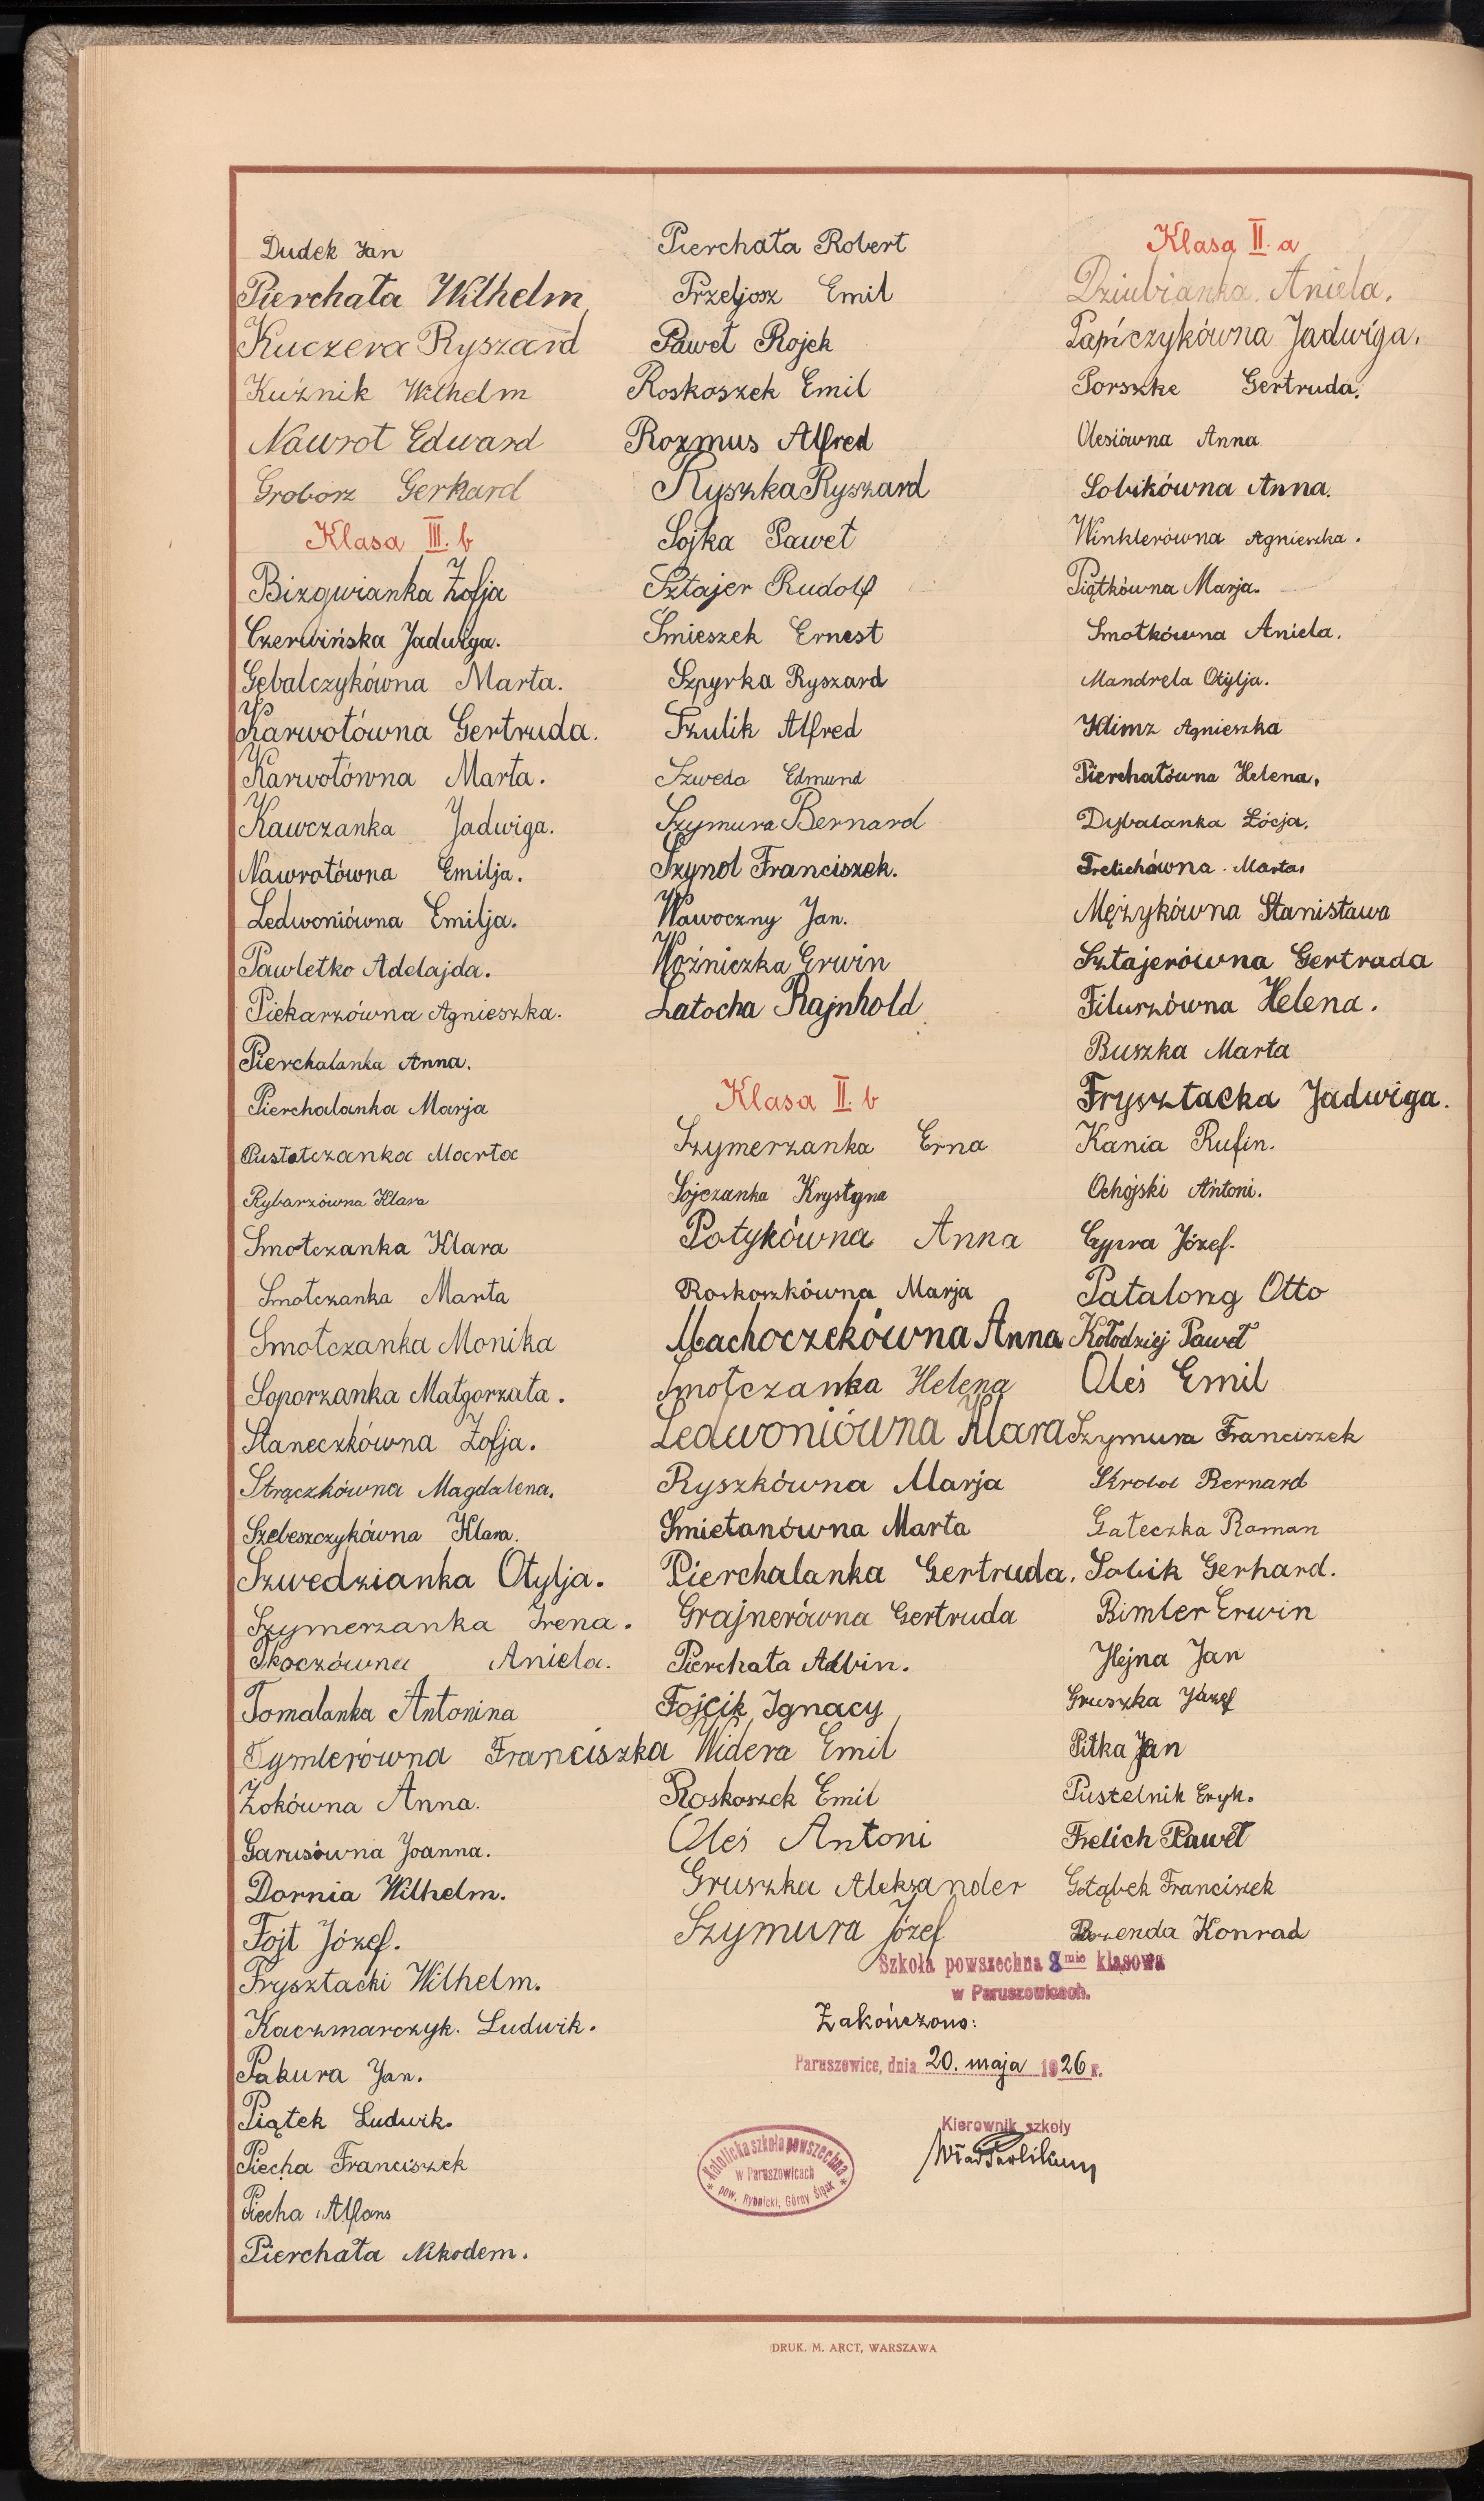 Dudek Jan
Pierchała Wilhelm
Kuczera Ryszard
Kuźnik Wilhelm
Nawrot Edward
Groborz Gerhard
Klasa III. b
Bizgwianka Zofja
Czerwińska Jadwiga.
Gębalczykówna Marta.
Karwotówna Gertruda.
Karwotówna Marta.
Kawczanka Jadwiga.
Nawrotówna Emilja.
Ledwoniówna Emilja.
Pawletko Adelajda.
Piekarzówna Agnieszka.
Pierchalanka Anna.
Pierchalanka Marja
Pustołczanka Marta
Rybarzówna Klara
Smołczanka Klara
Smołczanka Marta
Smołczanka Monika
Soporzanka Małgorzata.
Staneczkówna Zofja.
Strączkówna Magdalena.
Szebeszczykówna Klara.
Szwedzianka Otylja.
Szymerzanka Irena.
Tkoczówna Aniela.
Tomalanka Antonina
Tymlerówna Franciszka
Żokówna Anna.
Garusówna Joanna.
Dornia Wilhelm.
Fojt Józef.
Frysztacki Wilhelm.
Kaczmarczyk. Ludwik.
Pakura Jan.
Piątek Ludwik.
Piecha Franciszek
Piecha Alfons
Pierchała Nikodem.
Pierchała Robert
Przeljosz Emil
Paweł Rojek
Roskoszek Emil
Rozmus Alfred
Ryszka Ryszard
Sojka Paweł
Sztajer Rudolf
Śmieszek Ernest
Szpyrka Ryszard
Szulik Alfred
Szweda Edmund
Szymura Bernard
Szynol Franciszek.
Wawoczny Jan.
Woźniczka Erwin
Latocha Rajnhold
Klasa II. b
Szymerzanka Erna
Sojczanka Krystyna
Potykówna Anna
Roskoszkówna Marja
Machoczekówna Anna
Smołczanka Helena
Ledwoniówna Klara
Ryszkówna Marja
Smietanówna Marta
Pierchalanka Gertruda.
Grajnerówna Gertruda
Pierchała Albin.
Fojcik Ignacy
Widera Emil
Roskoszek Emil
Oleś Antoni
Gruszka Aleksander
Szymura Józef
Klasa II. a
Dziubianka. Aniela.
Papiczykówna Jadwiga.
Porszke Gertruda.
Olesiówna Anna
Sobikówna Anna.
Winklerówna Agnieszka.
Piątkówna Marja.
Smołkówna Aniela.
Mandrela Otylja.
Klimz Agnieszka
Pierchałówna Helena.
Dybalanka Łócja.
Frelichówna. Marta.
Mężykówna Stanisława
Sztajerówna Gertrada
Filurzówna Helena.
Buszka Marta
Frysztacka Jadwiga.
Kania Rufin.
Ochójski Antoni.
Cypra Józef.
Patalong Otto
Kołodziej Paweł
Oleś Emil
Szymura Franciszek
Skrobol Bernard
Gałeczka Roman
Sobik Gerhard.
Bimler Erwin
Hejna Jan
Gruszka Józef
Pitka Jan
Pustelnik Eryk.
Frelich Paweł
Gołąbek Franciszek
Konrad
Szkoła powszechna 8 mio klasowa
w Paruszowicach.
Zakończono:
Paruszowice, dnia 20. maja 1926 r.
Kierownik szkoły
Katolicka szkoła powszechna
w Paruszowicach
* pow. Rybnicki, Górny Śląsk *
DRUK. M. ARCT, WARSZAWA